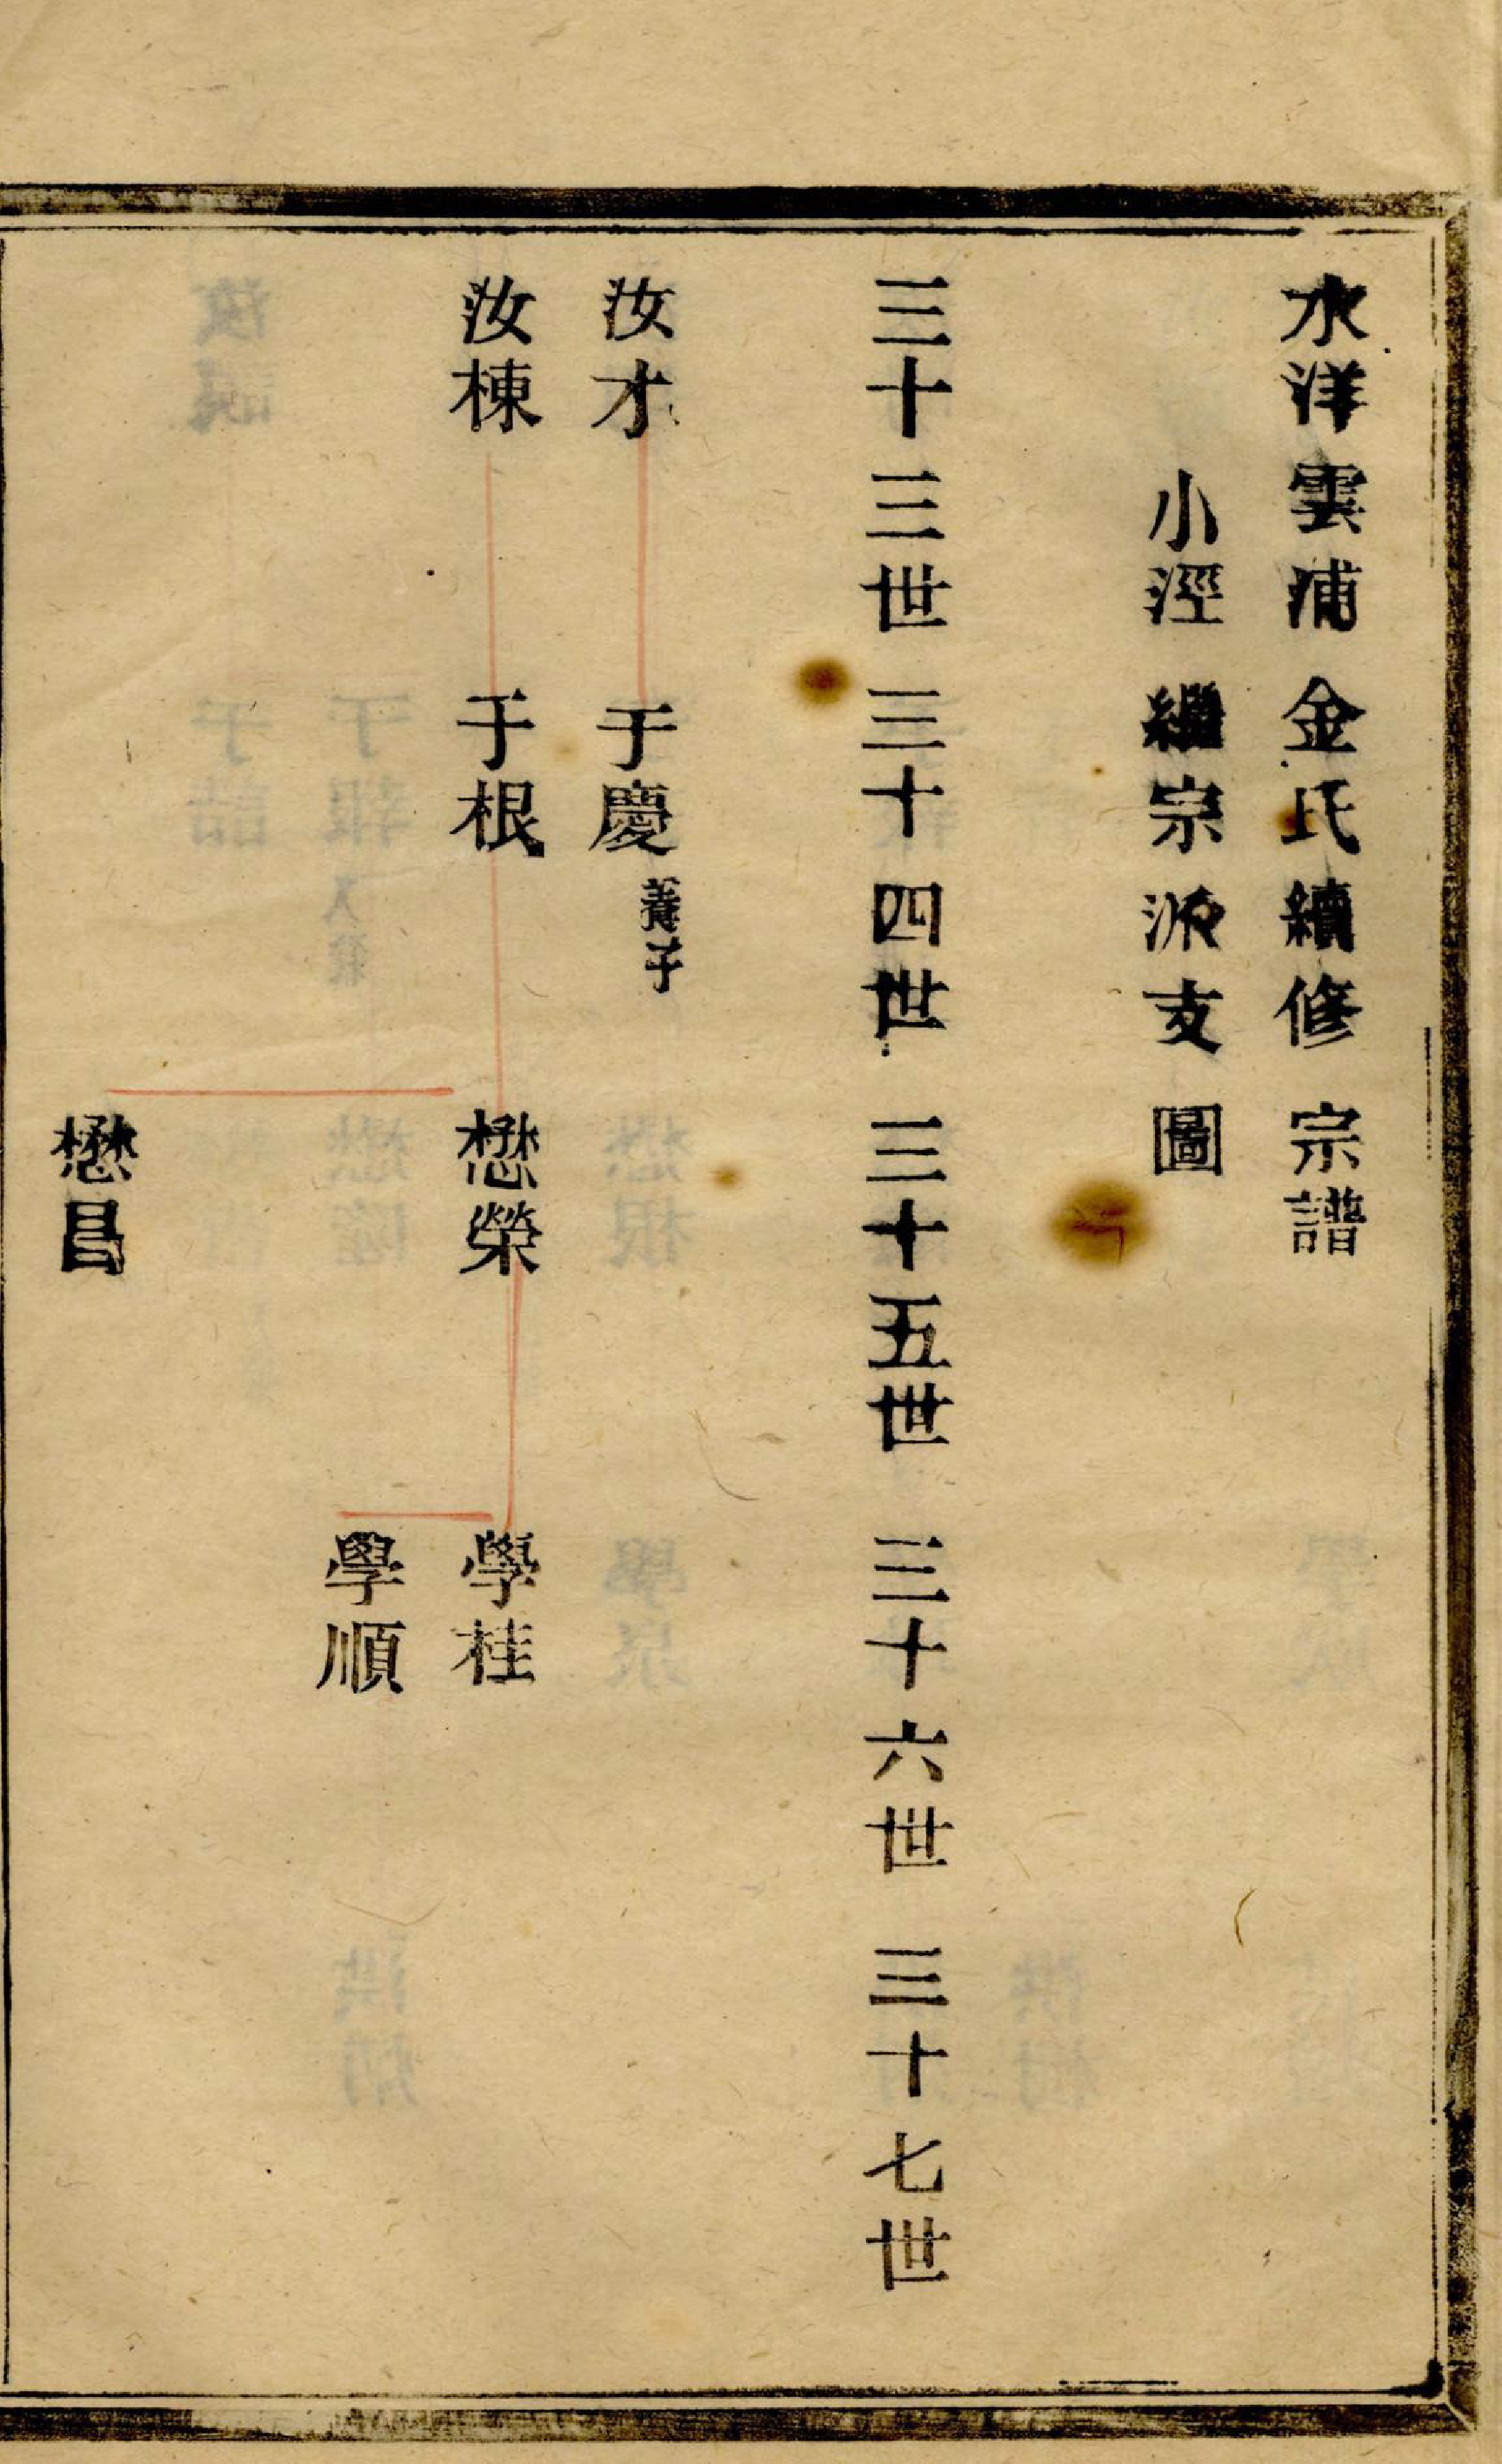 水洋雲浦金氏續修宗譜
小涇繼宗派支圖
三十三世 三十四世 三十五世 三十六世 三十七世
汝才 于慶 養子
汝棟 于根 懋榮 學桂
學順
懋昌